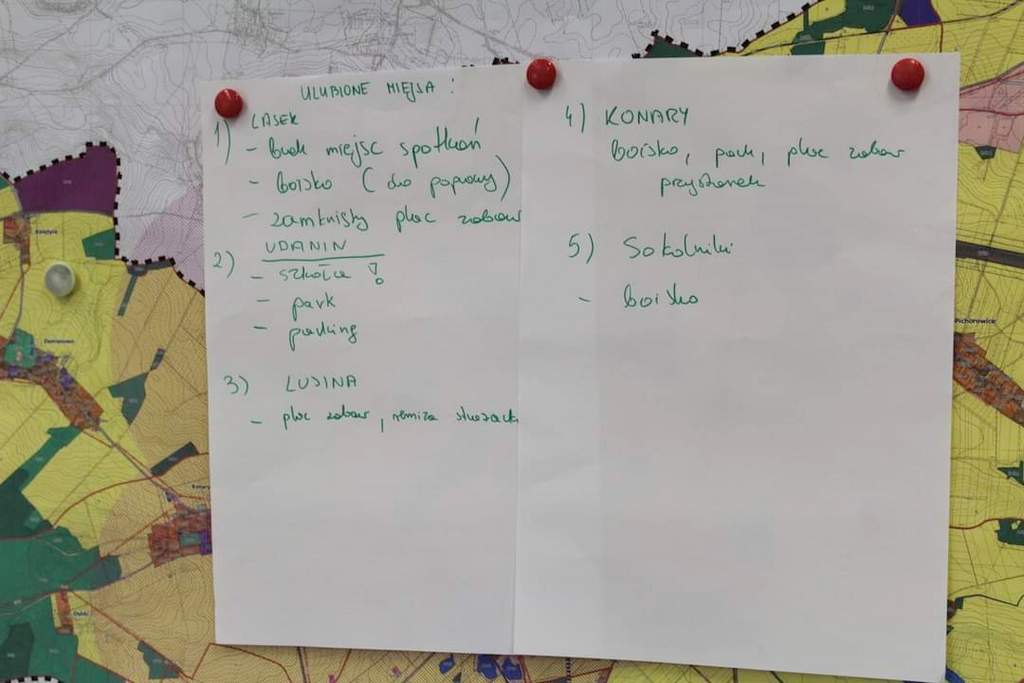 ULUBIONE MIEJSA :
1) LASEK
- brak miejsc spotkań
- boisko (do poprawy)
- zamknisty plac zabaw
2) UDANIN
- szkoła !
- park
- parking
3) LUSINA
- plac zabaw, remiza strażack
4) KONARY
boisko, park, plac zabaw
przystanek
5) Sokolniki
- boisko
Pichorowice